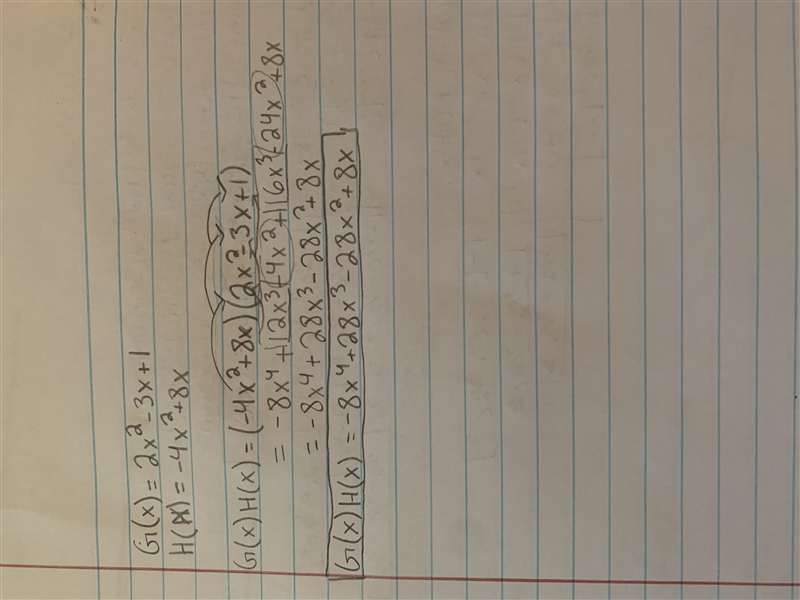 G(x) = 2x² - 3x + 1
H(x) = -4x² + 8x
G(x)H(x) = (-4x² + 8x)(2x² - 3x + 1)
= -8x⁴ + 12x³ - 4x² + 16x³ - 24x² + 8x
= -8x⁴ + 28x³ - 28x² + 8x
G(x)H(x) = -8x⁴ + 28x³ - 28x² + 8x